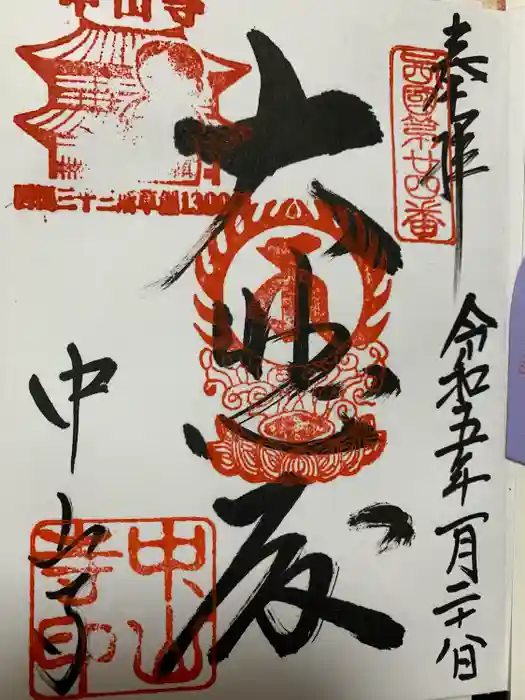 奉拝
西国第廿四番
令和五年一月二十八日
大悲殿
中山寺
中山寺
西国三十三所草創1300年
中山寺印